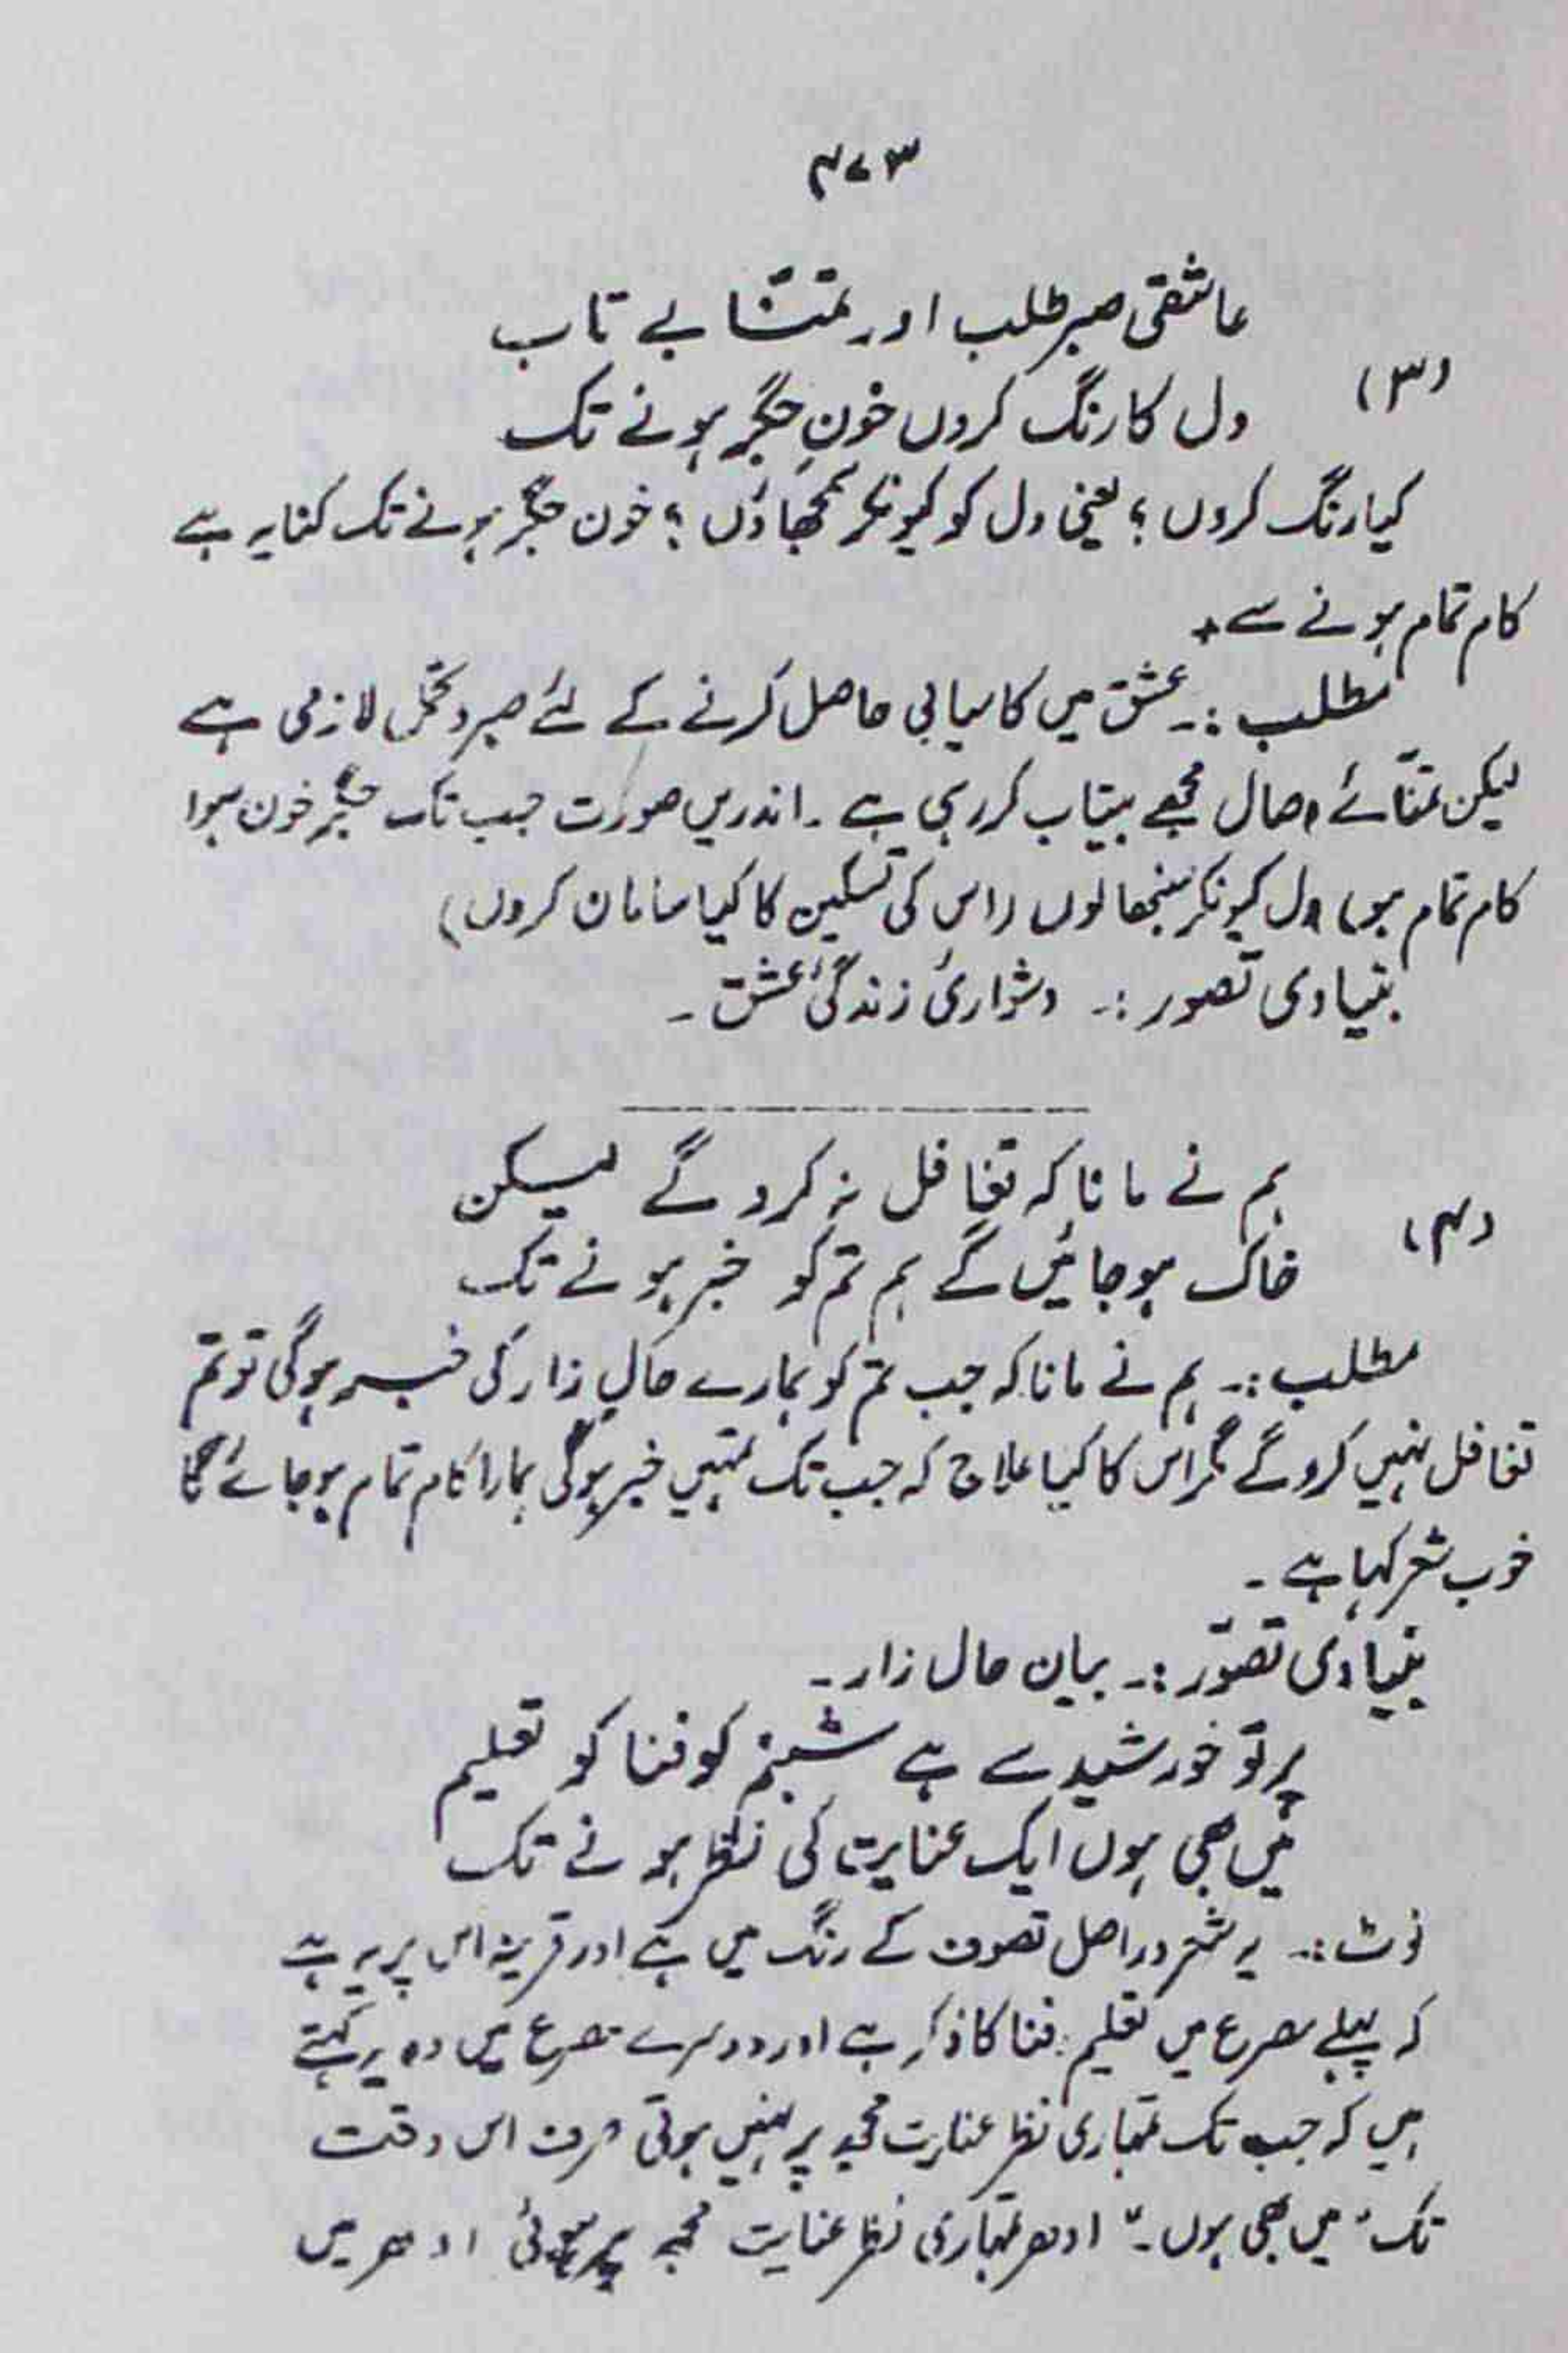 ۴۷۳
عاشقی صبر طلب اور تمنّا بے تاب
(۳)
دل کا رنگ کروں خونِ جگر ہونے تک
کیا رنگ کروں؟ یعنی دل کو کیونکر سمجھاؤں؟ خون جگر ہونے تک کنایہ ہے
کام تمام ہونے سے +
مطلب :۔ عشق میں کامیابی حاصل کرنے کے لئے صبر و تحمل لازمی ہے
لیکن تمنّائے وصال مجھے بیتاب کر رہی ہے ۔ اندریں صورت جب تک جگر خون ہو،
کام تمام ہو، دل کیونکر سنبھالوں (اس کی تسکین کا کیا سامان کروں)
بنیادی تصور :۔ دشواریٔ زندگیٔ عشق ۔
ہم نے مانا کہ تغافل نہ کرو گے لیکن
(۴)
خاک ہو جائیں گے ہم تم کو خبر ہونے تک
مطلب :۔ ہم نے مانا کہ جب تم کو ہمارے حالِ زار کی خبر ہوگی تو تم
تغافل نہیں کرو گے مگر اس کا کیا علاج کہ جب تک تمہیں خبر ہوگی ہمارا کام تمام ہو جائے گا
خوب شعر کہا ہے ۔
بنیادی تصوّر :۔ بیان حال زار ۔
پرتو خورشید سے ہے شبنم کو فنا کو تعلیم
میں بھی ہوں ایک عنایت کی نظر ہونے تک
نوٹ :۔ یہ شعر دراصل تصوف کے رنگ میں ہے اور قرینہ اس پر یہ ہے
کہ پہلے مصرع میں تعلیم فنا کا ذکر ہے اور دوسرے مصرع میں وہ یہ کہتے
ہیں کہ جب تک تمہاری نظر عنایت مجھ پر نہیں ہوتی صرف اس وقت
تک "میں بھی ہوں ۔" ادھر تمہاری نظر عنایت مجھ پر ہوئی ادھر میں